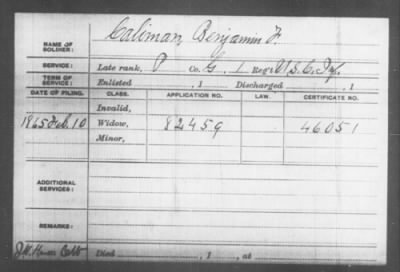 Caliman, Benjamin F.
NAME OF SOLDIER:
SERVICE: Late rank, P Co. G, 1 Reg't U.S.C. Inf.
TERM OF SERVICE: Enlisted , 1 Discharged , 1
DATE OF FILING. CLASS. APPLICATION NO. LAW. CERTIFICATE NO.
Invalid,
1865 Feb. 10 Widow, 82459 46051
Minor,
ADDITIONAL SERVICES:
REMARKS:
Died , 1 , at